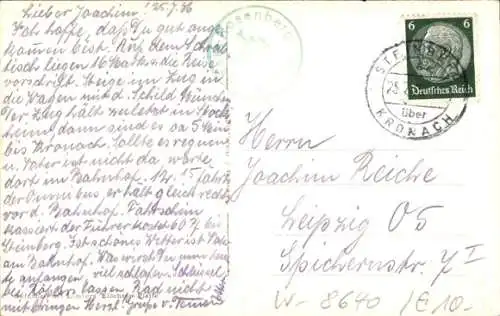 Lieber Joachim! 25.7.36
Ich hoffe, dass Du gut ange-
kommen bist. Auf dem Schreib
tisch liegen 16 Mark für die Reise
vorschrift. Steige im Zug in
die Wagen mit d. Schild München
Der Zug hält zuletzt in Hoch
heim, dann sind es ca 5 Min
bis Kronach. Sollte es regnen
u. Vater ist nicht da, warte
dort im Bahnhof. 14.15 fährt
der Omnibus er hält gleich rechts
vor d. Bahnhof. Fahrschein
kassiert der Führer kostet 60 Pf bis
Steinberg. Ist schönes Wetter ist Vater
am Bahnhof. Was wirst Du nun heute
anfangen, viel schlafen.
bei lassen. Rad nicht
mitbringen Herzl. Gruß v.
Rosenberg
6
Deutsches Reich
STEINBERG
25.7.
über
KRONACH
Herrn
Joachim Reiche
Leipzig O5
Spichernstr. 7 I
W-8640 /E10.-